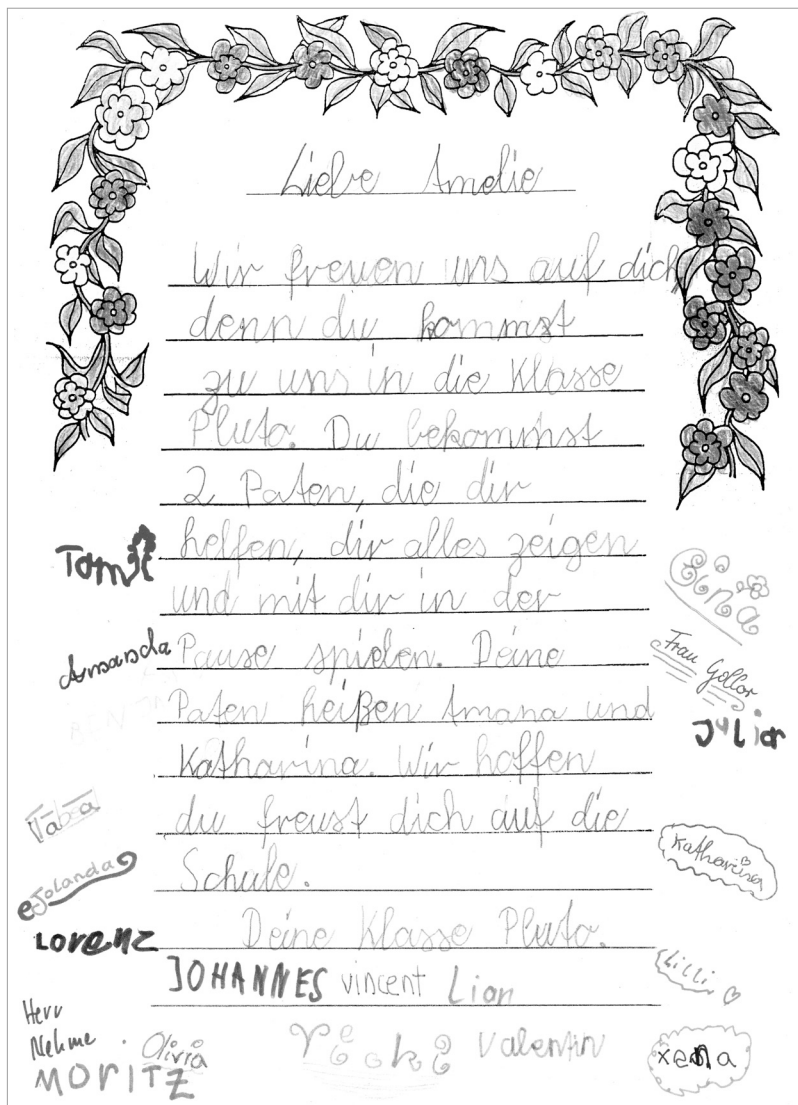 Liebe Amelie
Wir freuen uns auf dich,
denn du kommst
zu uns in die Klasse
Pluto. Du bekommst
2 Paten, die dir
helfen, dir alles zeigen
und mit dir in der
Pause spielen. Deine
Paten heißen Amana und
Katharina. Wir hoffen
du freust dich auf die
Schule.
Deine Klasse Pluto.
Tom
Amanda
Tabea
Jolanda
Lorenz
JOHANNES vincent Lion
Herr
Nehme
Olivia
MORITZ
Valentin
Gina
Frau Gollor
Julian
Katharina
Lilli
xena